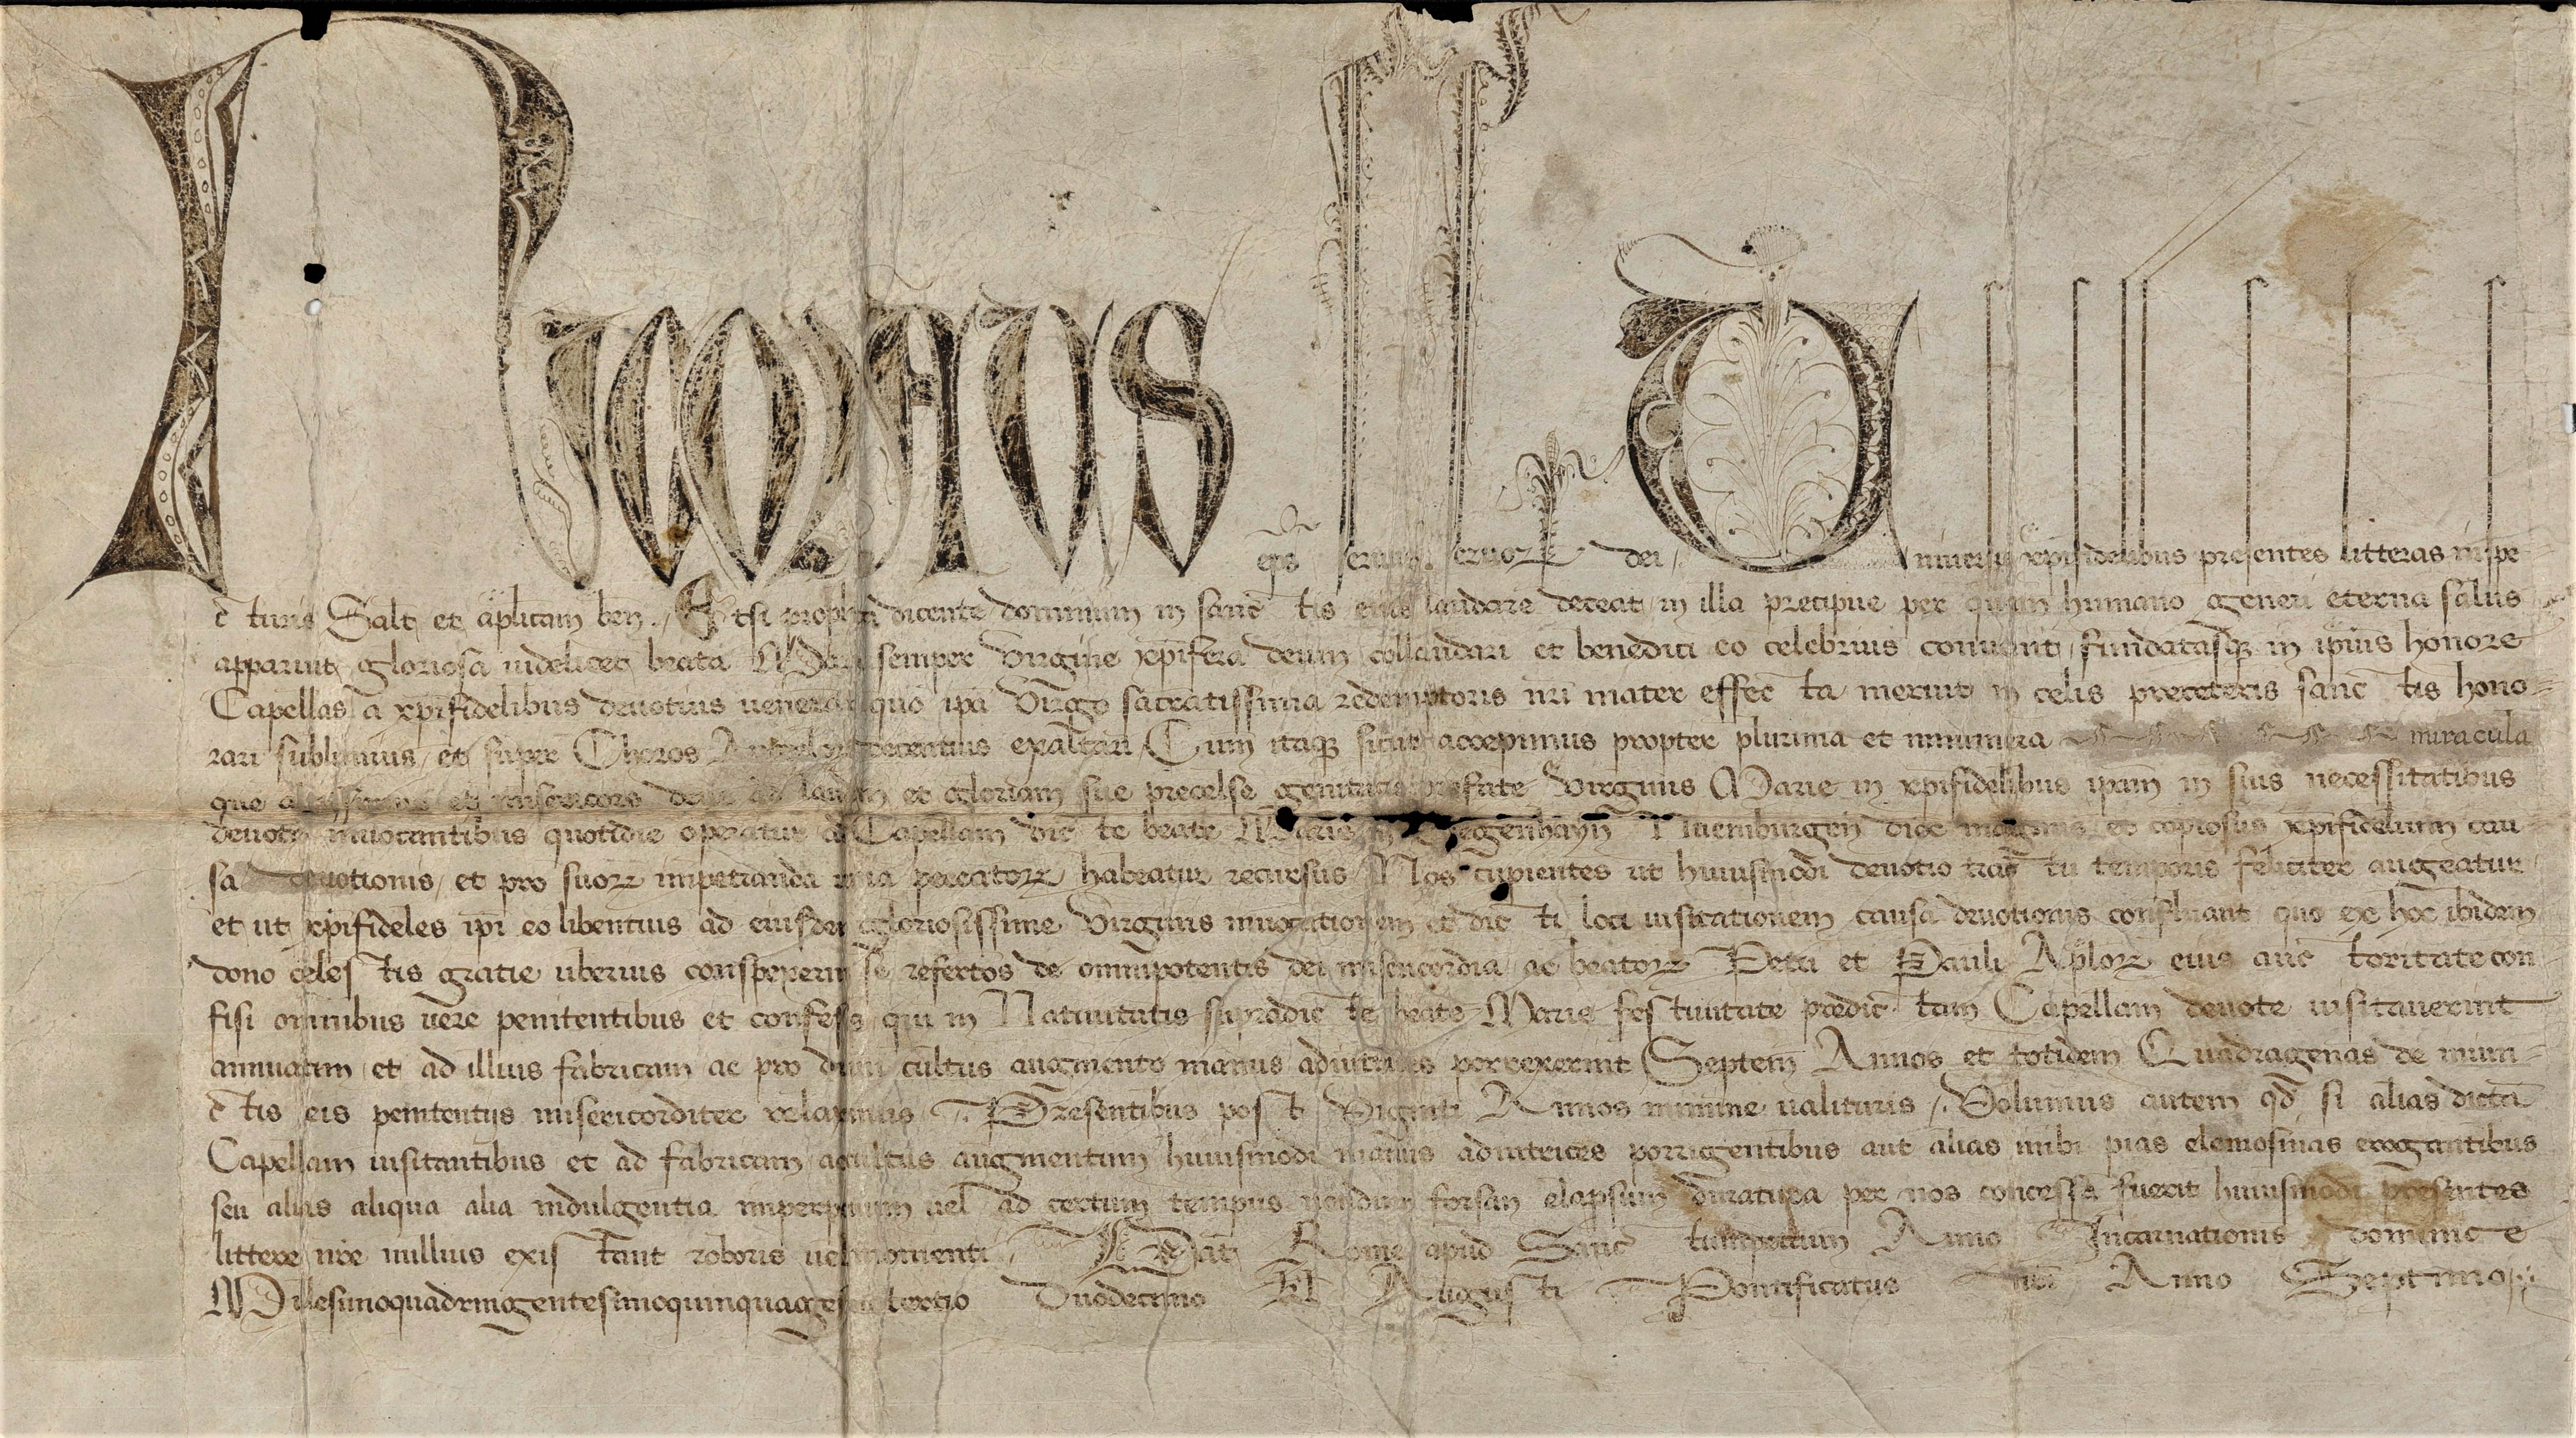 Nicolaus eps seruus seruoꝝ dei / Uniuersis xpifidelibus presentes litteras inspe
c̄turis Salt et aplicam ben . / Etsi propheta dicente dominum in sanc̄tis eius laudare deceat in illa precipue per quam humano generi eterna salus
apparuit gloriosa uidelicet beata Maria semper Virgine xpifera deum collaudari et benedici eo celebrius conuenit / fundatasqꝫ in ipsius honore
Capellas a xpifidelibus deuotius uenerari quo ipa Virgo sacratissima redemptoris nri mater effec̄ta meruit in celis preceteris sanc̄tis hono
rari sublimius / et super Choros Angelorum decentius exaltari / Cum itaqꝫ sicut accepimus propter plurima et innumera miracula
que altissimus et misericors deus ad laudem et gloriam sue precelse genitricis prefate Virginis Marie in xpifidelibus ipam in suis necessitatibus
deuote inuocantibus quotidie operatur ad Capellam dic̄te beate Marie in egenhayn Niemburgen dioc magnus et copiosus xpifidelium cau
sa deuotionis / et pro suoꝝ impetranda uenia peccatoꝝ habeatur recursus / Nos cupientes ut huiusmodi deuotio trac̄tu temporis feliciter augeatur
et ut xpifideles ipi eo libentius ad eiusdem gloriosissime Virginis inuocationem et dic̄ti loci uisitationem causa deuotionis confluant quo ex hoc ibidem
dono celestis gratie uberius conspexerint se refertos de omnipotentis dei misericordia ac beatoꝝ Petri et Pauli Aploꝝ eius auc̄toritate con
fisi omnibus uere penitentibus et confessis qui in Natiuitatis supradic̄te beate Marie festiuitate predic̄tam Capellam deuote uisitauerint
annuatim et ad illius fabricam ac pro diuini cultus augmento manus adiutrices porrexerint Septem Annos et totidem Quadragenas de iniun
c̄tis eis penitentijs misericorditer relaxamus Presentibus post Viginti Annos minime ualituris / . Volumus autem qd si alias dictam
Capellam uisitantibus et ad fabricam ac cultus augmentum huiusmodi manus adiutrices porrigentibus aut alias inibi pias elemosinas erogantibus
seu alias aliqua alia indulgentia imperpetuum uel ad certum tempus nondum forsan elapsum duratura per nos concessa fuerit huiusmodi presentes
littere nre nullius existant roboris uel momenti Dat Rome apud Sanc̄tumpetrum Anno Incarnationis dominice
Millesimoquadringentesimoquinquagesimotertio Duodecimo kl Augusti Pontificatus nri Anno Septimo